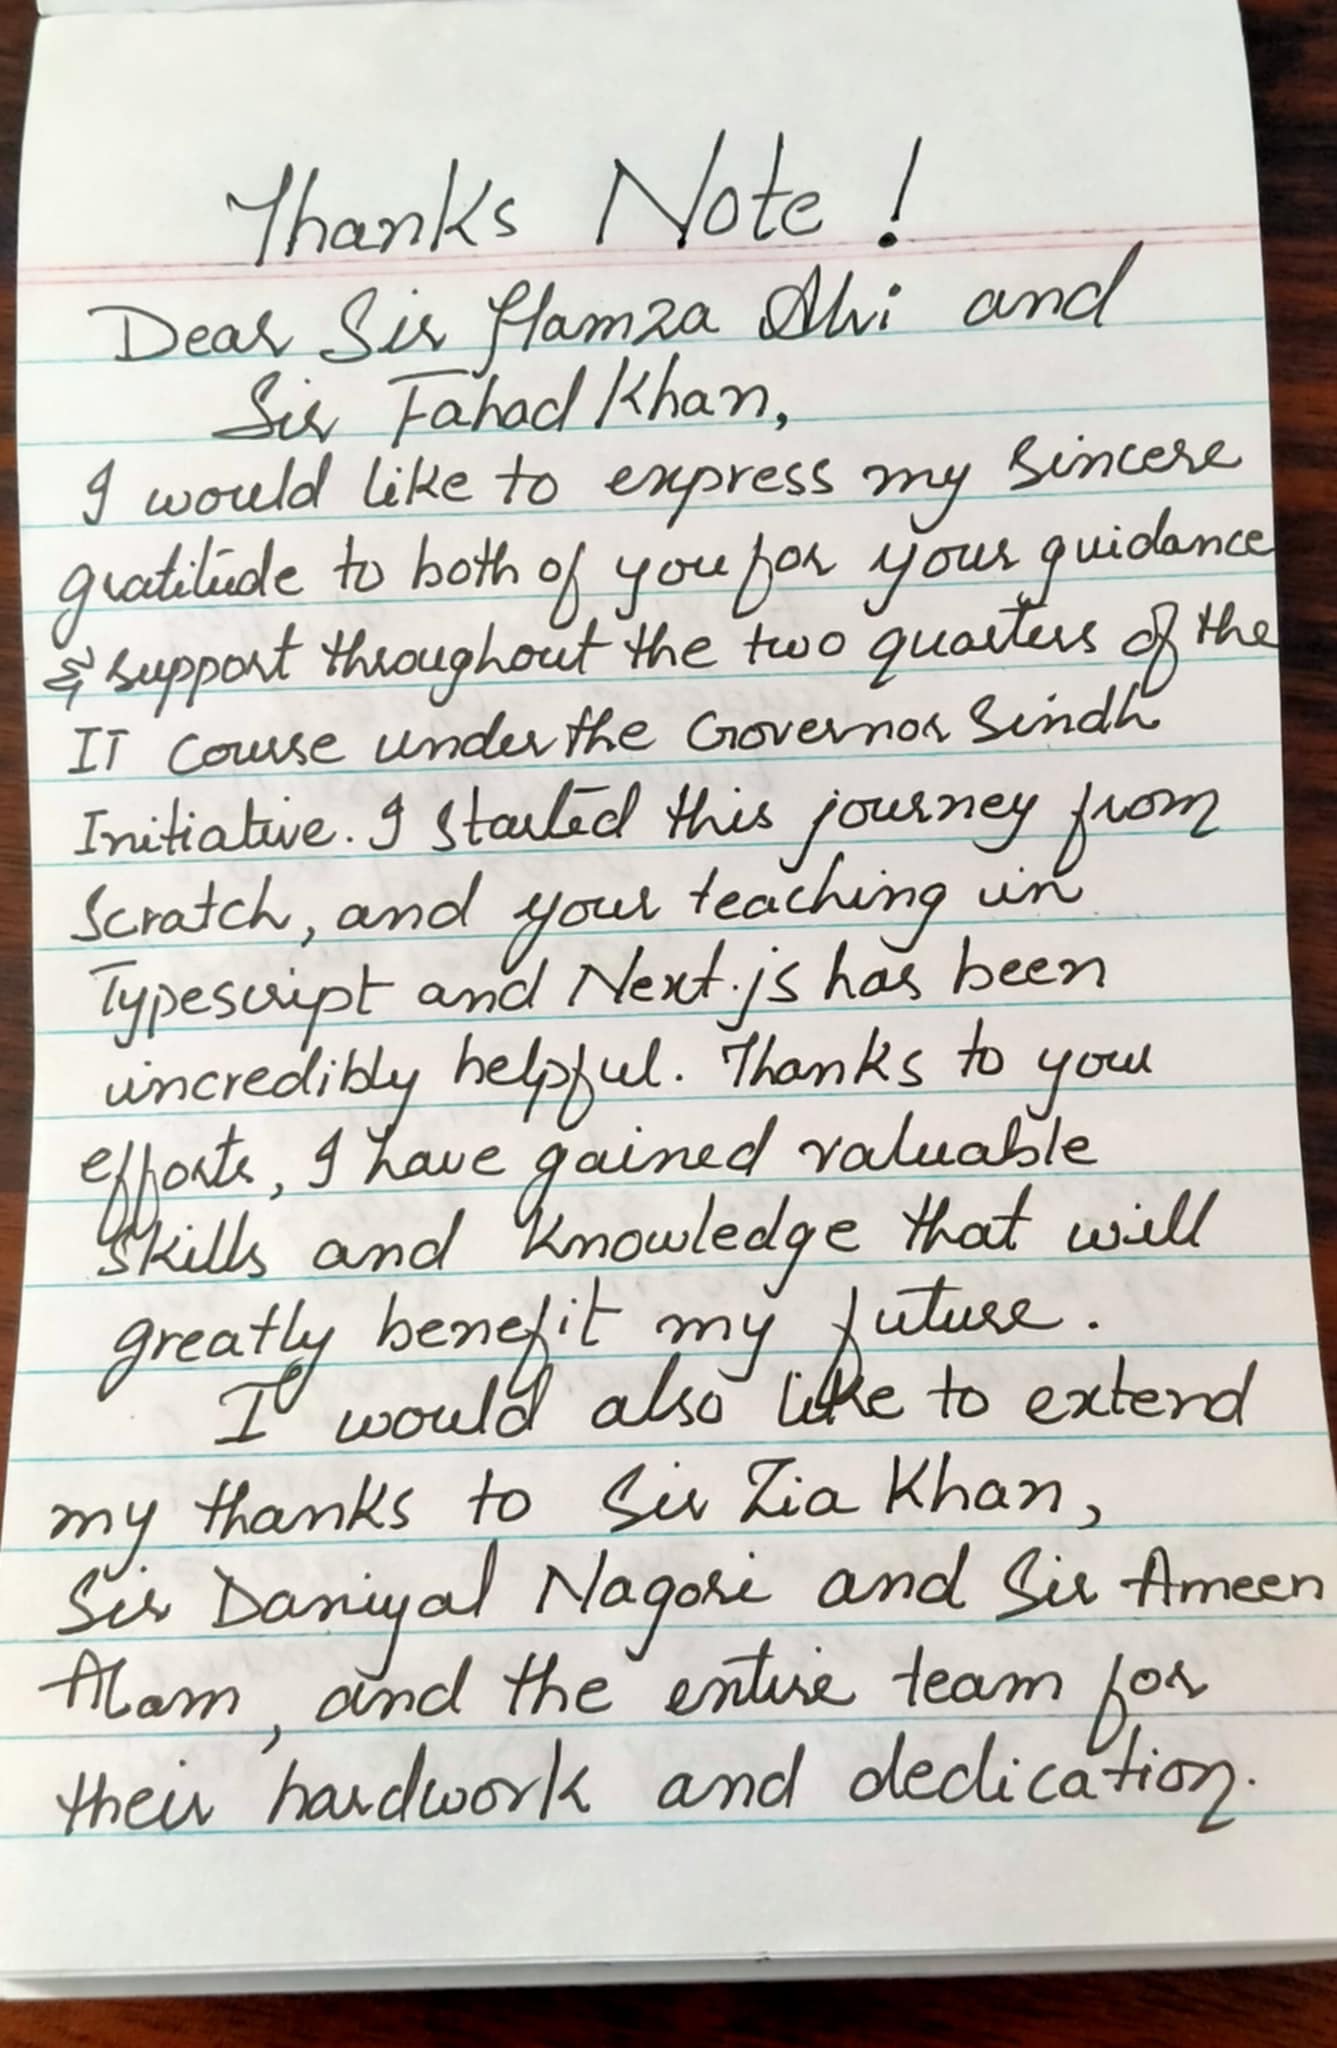 Thanks Note !
Dear Sir Hamza Alvi and
Sir Fahad Khan,
I would like to express my sincere
gratitude to both of you for your guidance
& support throughout the two quarters of the
IT course under the Governor Sindh
Initiative. I started this journey from
scratch, and your teaching in
Typescript and Next.js has been
incredibly helpful. Thanks to your
efforts, I have gained valuable
skills and knowledge that will
greatly benefit my future.
I would also like to extend
my thanks to Sir Zia Khan,
Sir Daniyal Nagori and Sir Ameen
Alam, and the entire team for
their hardwork and dedication.